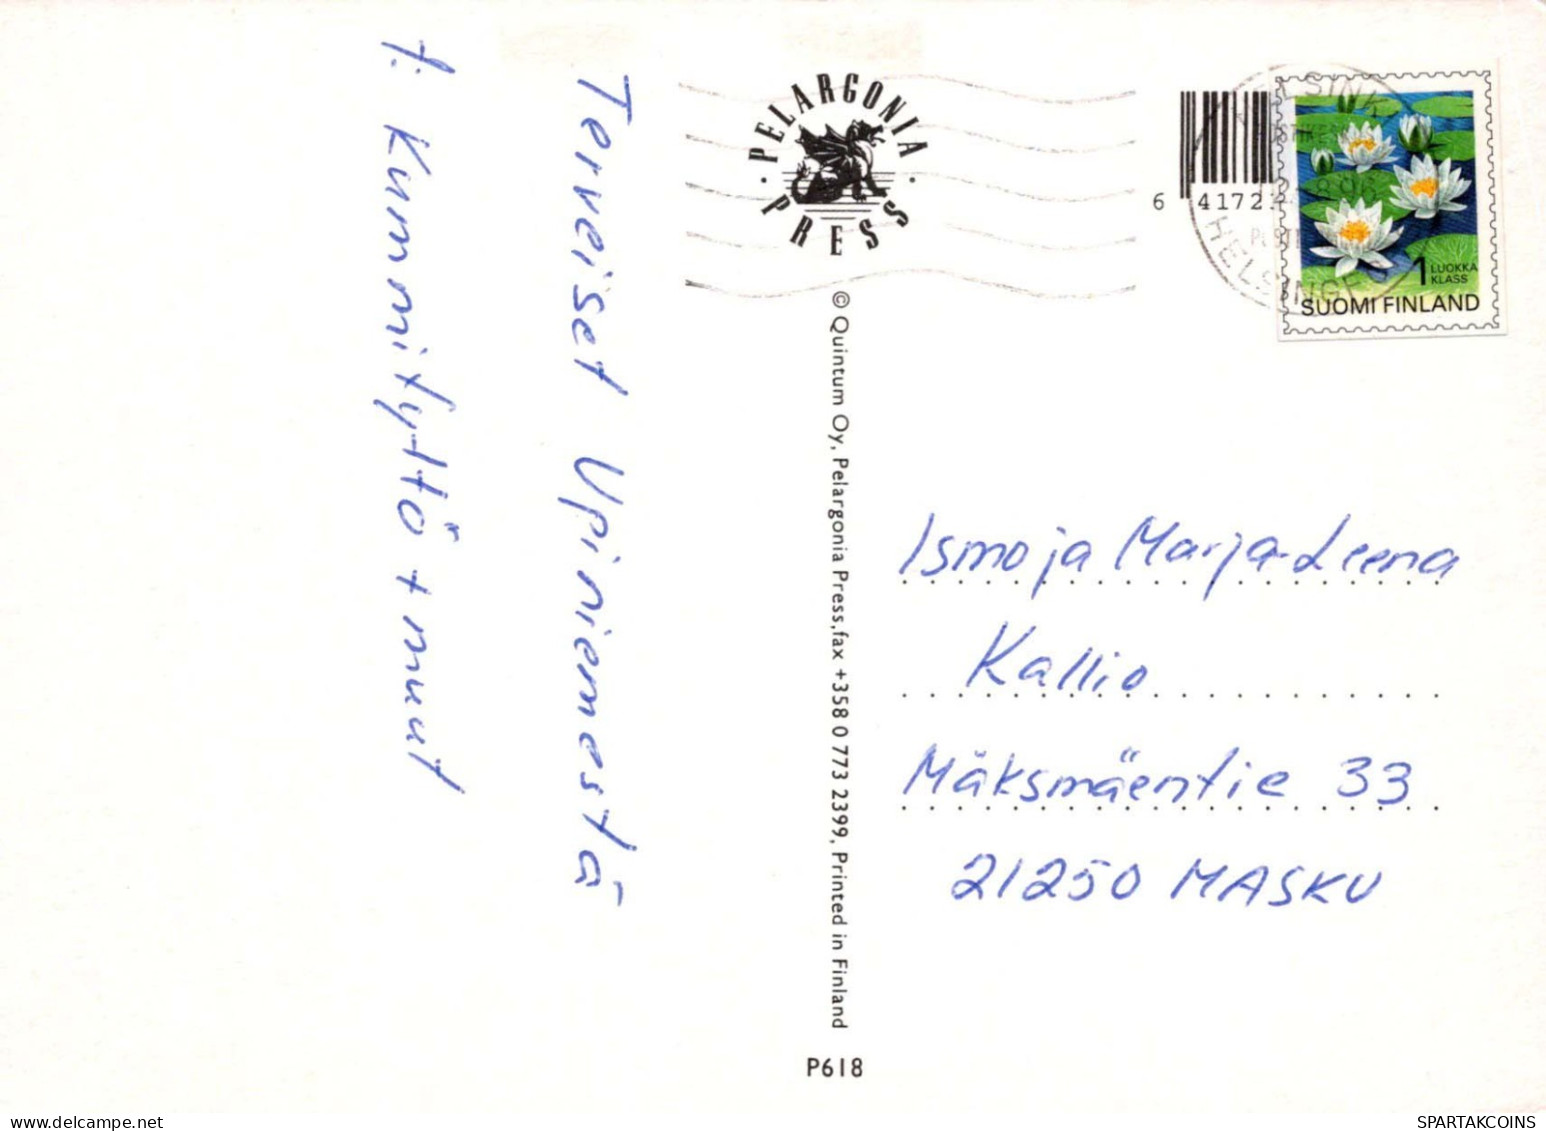 Terveiset Upiniemestä
t: Kummityttö + muut
· PELARGONIA ·
PRESS
© Quintum Oy, Pelargonia Press, fax +358 0 773 2399, Printed in Finland
P618
6 41723
HELSINKI
HELSINGFORS
1 LUOKKA
KLASS
SUOMI FINLAND
Ismo ja Marja-Leena
Kallio
Mäksmäentie 33
21250 MASKU
delcampe.net
SPARTAKCOINS